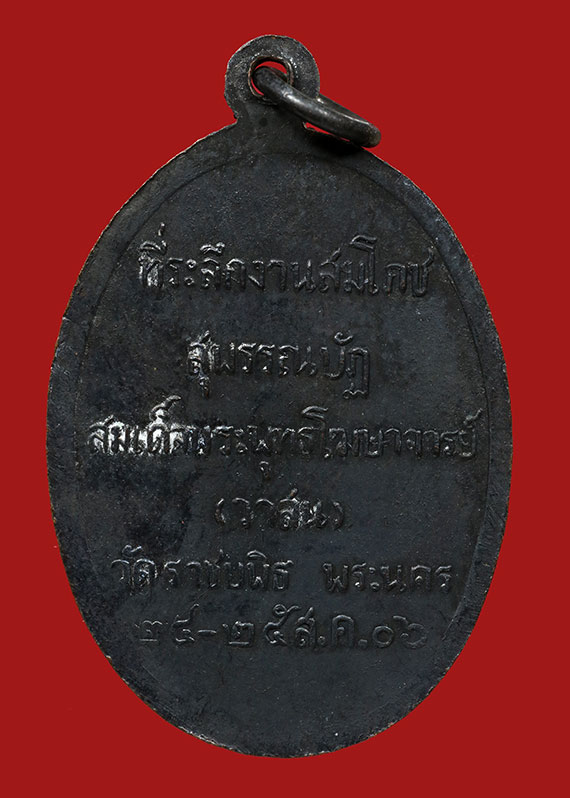 ที่ระลึกงานสมโคช
สุพรรณบัฏ
สมเด็จพระพุทธโฆษาจารย์
(วาสน)
วัดราชบพิธ พระนคร
๒๔-๒๕ส.ค.๐๖